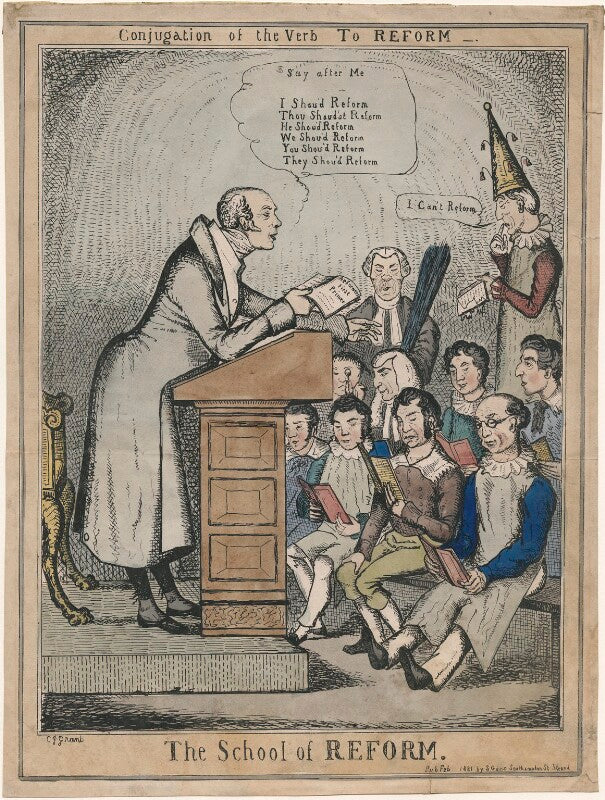 Conjugation of the Verb To REFORM —.
Say after Me
I Shou'd Reform
Thou Shoud'st Reform
He Shou'd Reform
We Shou'd Reform
You Shou'd Reform
They Shou'd Reform
I Can't Reform
C J Grant
The School of REFORM.
Pub Feb 1831 by S Gans Southampton St Strand